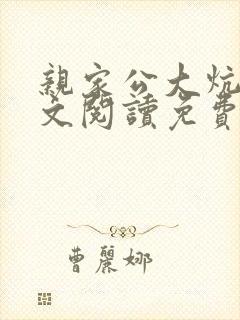 親家公大炕
文閱讀免費
曹麗娜